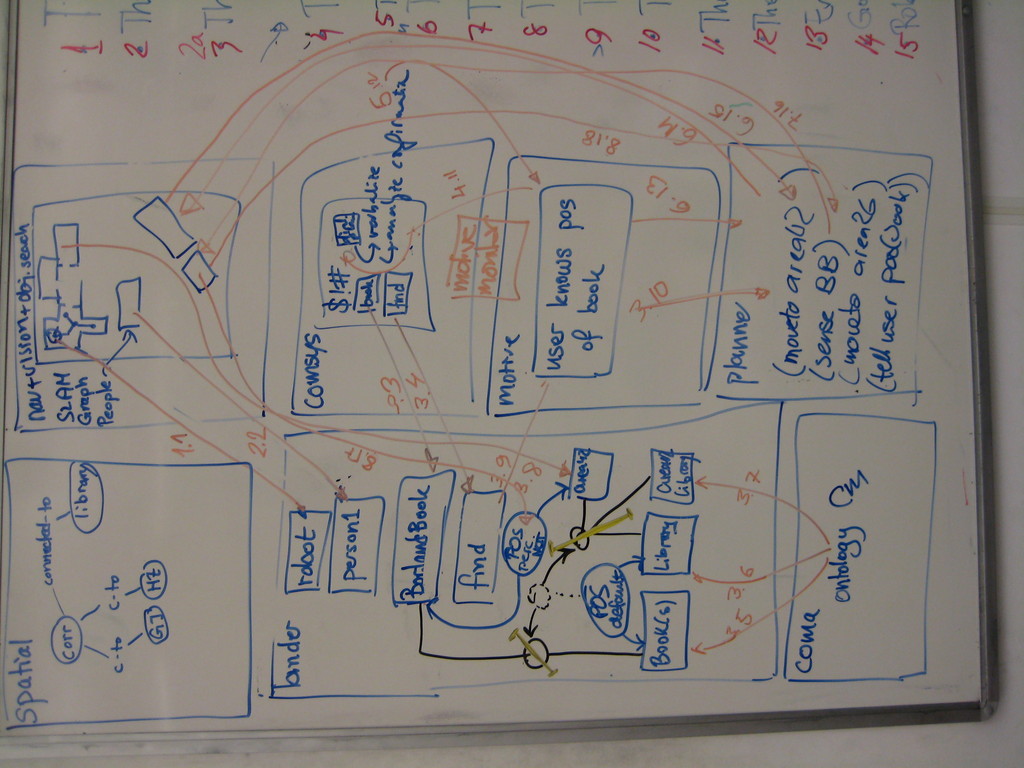 spatial
corr
connected-to
library
c-to
c-to
GJ
HZ
nav+vision+obj.search
SLAM
Graph
People
1.1
2.2
binder
robot
person1
BorlandBook
find
POS
perc.
POS
default
area42
Book(s)
Library
area42
library
8.17
comsys
$!#
book
find
verbalize
analyze confirmation
3.3
3.4
3.9
3.8
4.11
5.12
motive
monitor
motive
user knows pos
of book
3.10
6.13
8.18
6.14
6.15
7.16
planner
(moveto area42 )
(sense BB)
(moveto area26)
(tell user pos(book))
3.5
3.6
3.7
coma
ontology
1 T
2 Th
2a
3 Th
4 T
5 T
6 T
7 T
8 T
9 T
10 T
11 Th
12 The
13 Ex
14 Go
15 Rob